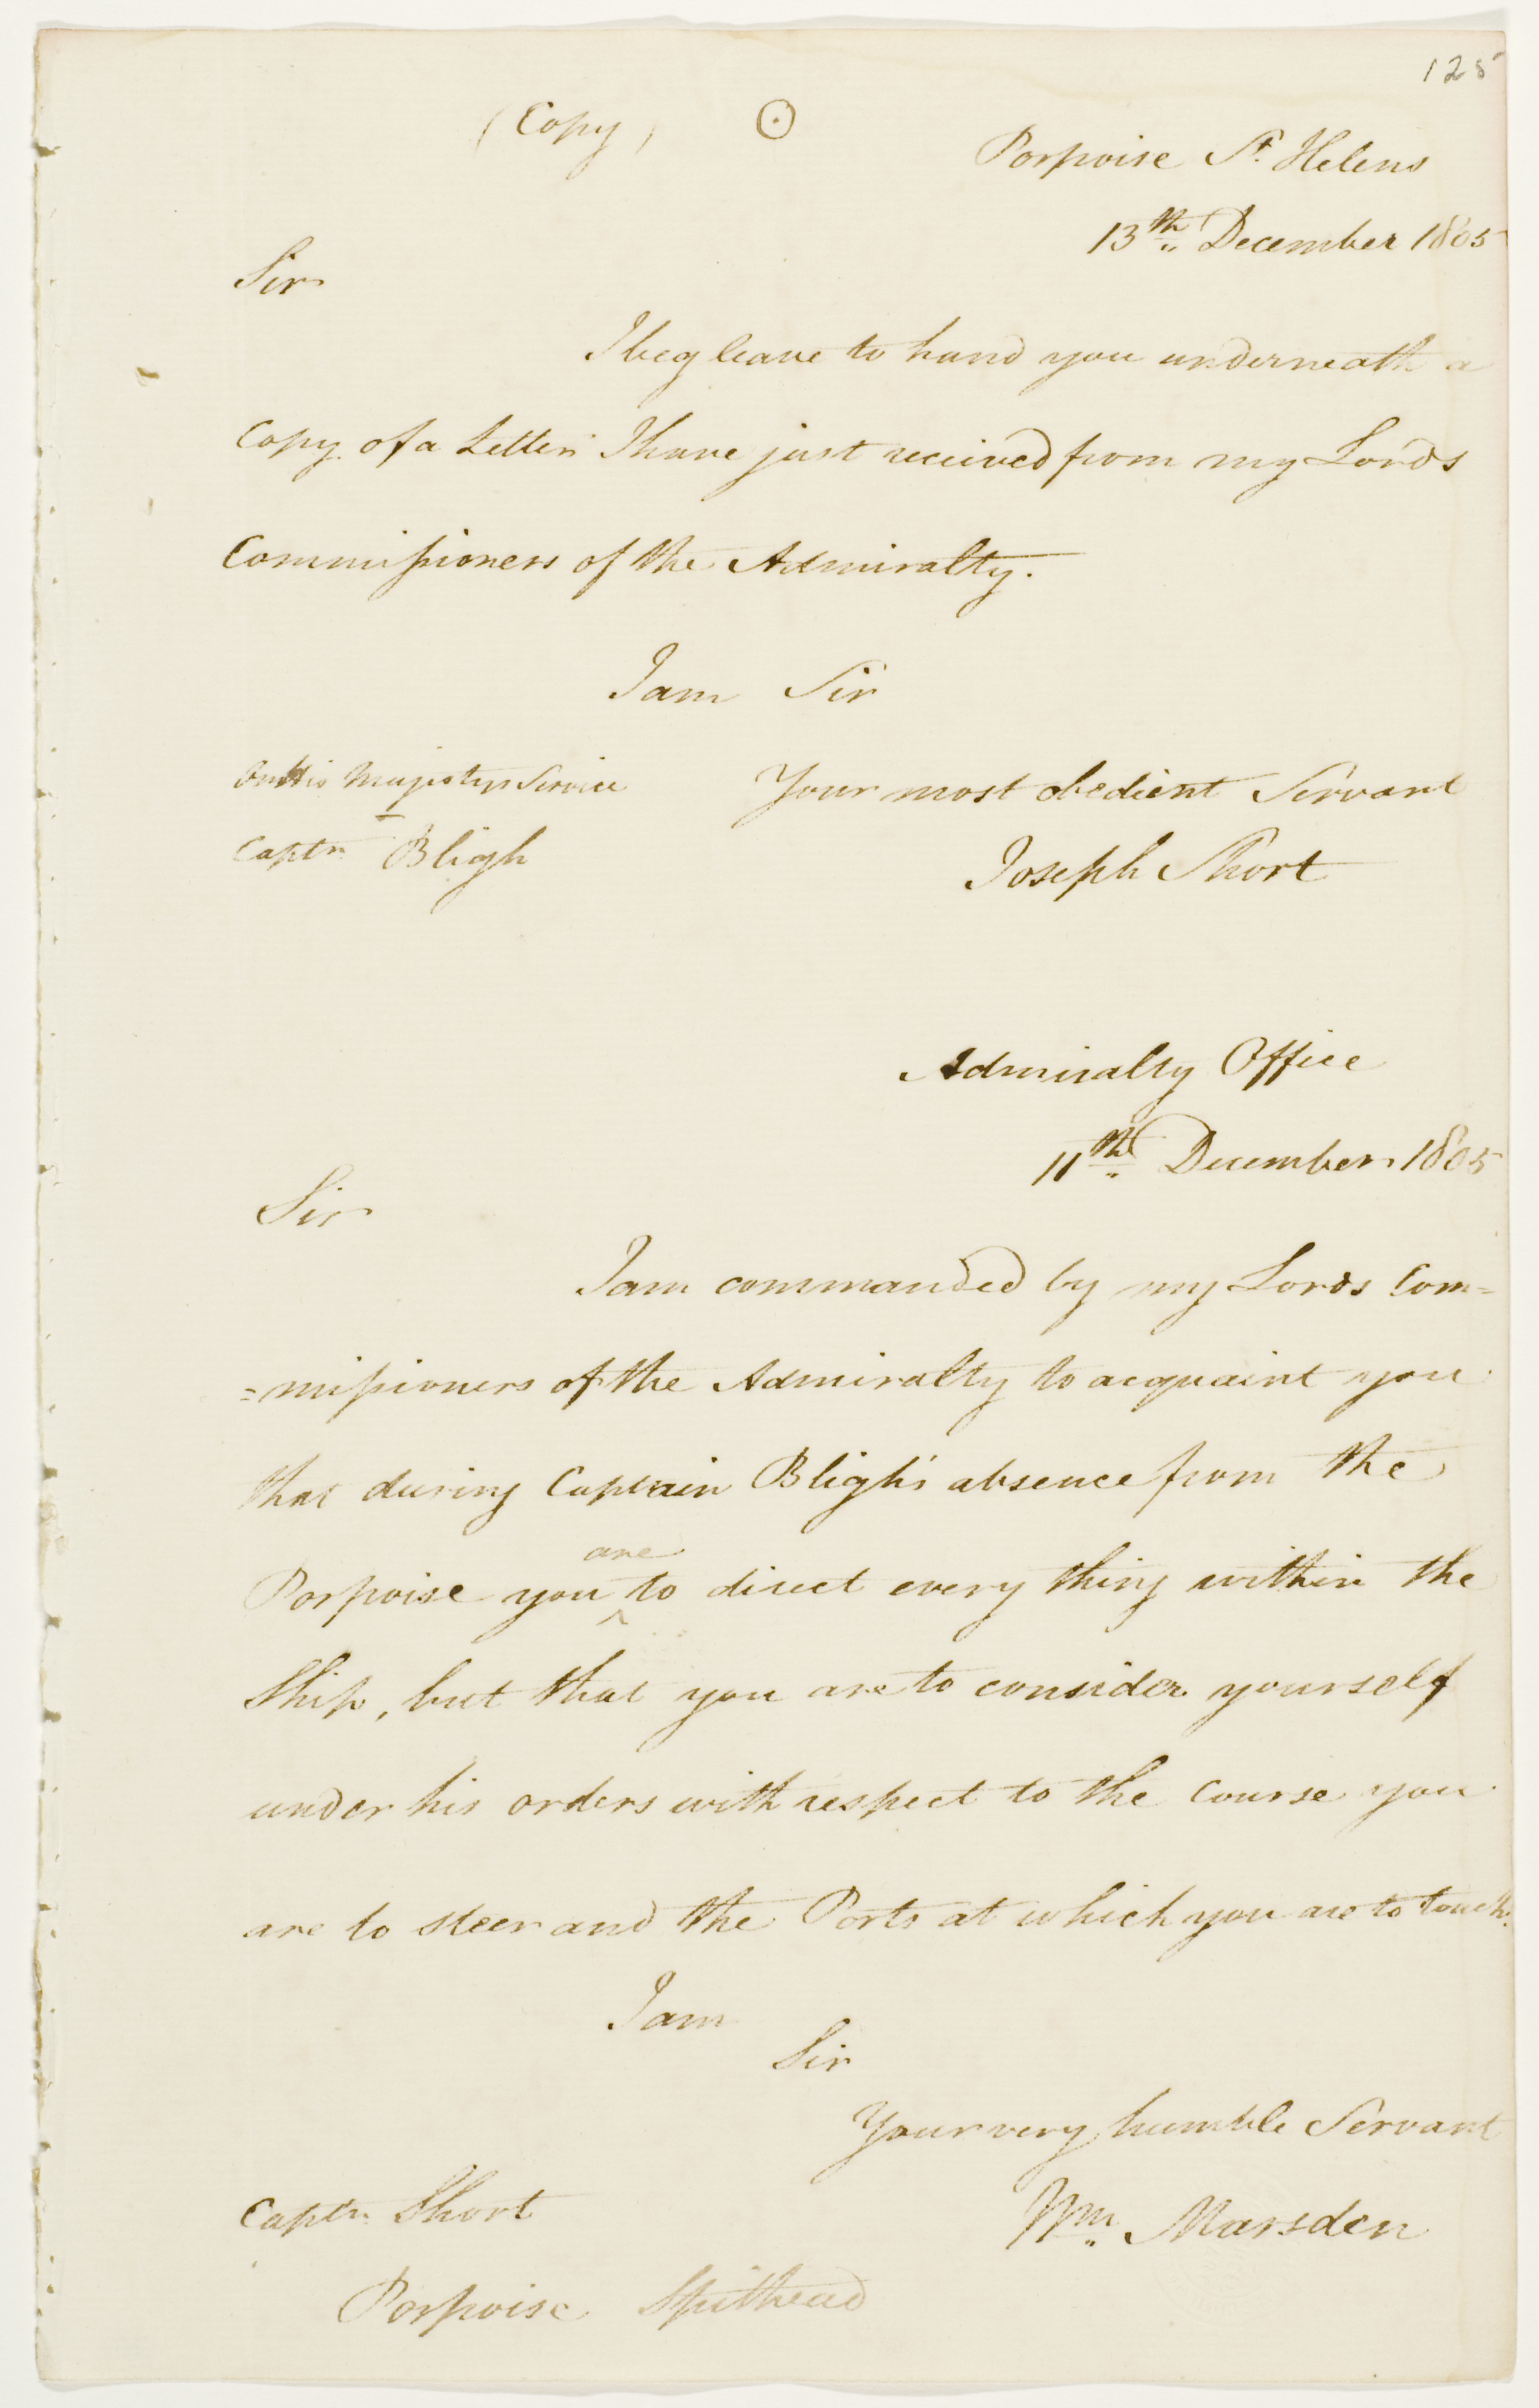 125
(Copy) ⊙
Porpoise St. Helens
13th December 1805
Sir
I beg leave to hand you underneath a
Copy of a Letter I have just received from my Lords
Commissioners of the Admiralty.
I am Sir
On His Majestys Service
Your most obedient Servant
Captn Bligh
Joseph Short
Admiralty Office
11th December 1805
Sir
I am commanded by my Lords Com=
=missioners of the Admiralty to acquaint you
that during Captain Bligh's absence from the
Porpoise you ^are to direct every thing within the
Ship, but that you are to consider yourself
under his orders with respect to the Course you
are to steer and the Ports at which you are to touch.
I am
Sir
Your very humble Servant
Captn Short
Wm. Marsden
Porpoise Spithead